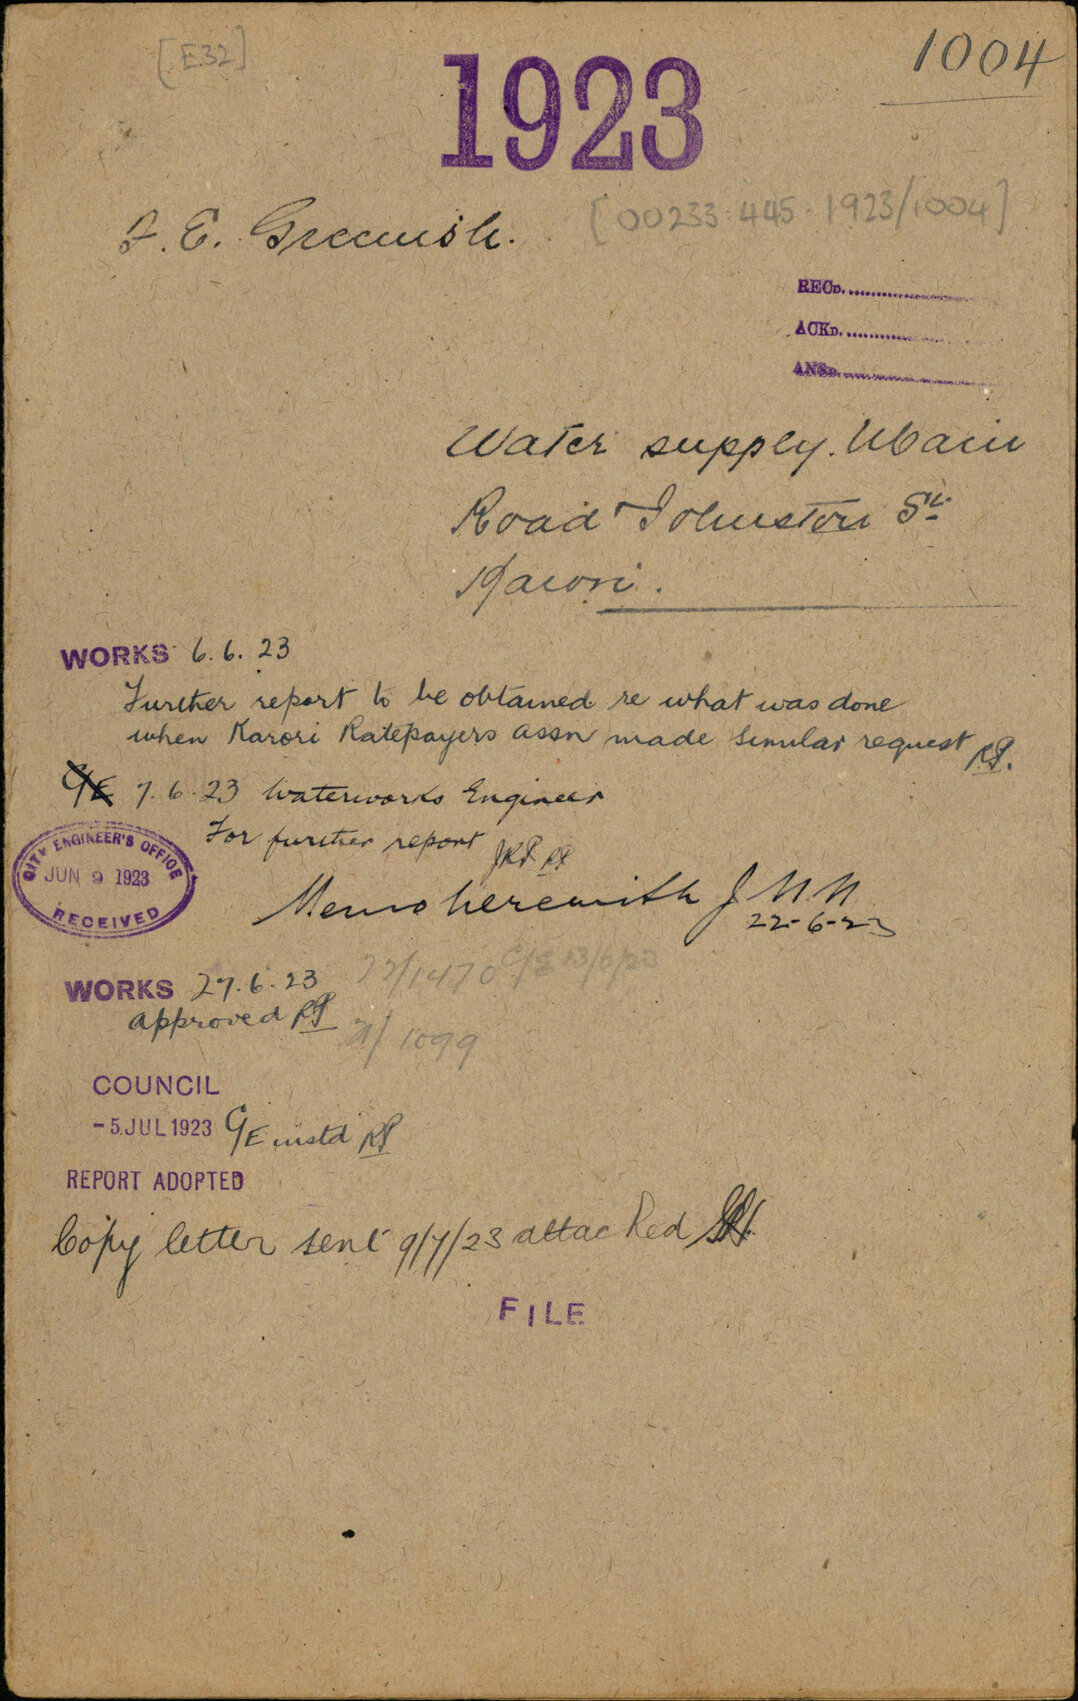 [E32]
1004
1923
F. E. Greenish.
[00233:445:1923/1004]
RECD.
ACKD.
ANSD.
Water supply. Main
Road & Johnston St.
Karori.
WORKS 6.6.23
Further report to be obtained re what was done
when Karori Ratepayers Assn made similar request RP.
C/E 7.6.23 Waterworks Engineer
For further report
CITY ENGINEER'S OFFICE
JUN 9 1923
RECEIVED
Memo herewith
22-6-23
22/1470 C/E 13/6/23
WORKS 27.6.23
approved RP
21/1099
COUNCIL
-5.JUL1923 C/E instd RP
REPORT ADOPTED
Copy letter sent 9/7/23 attac Red
FILE